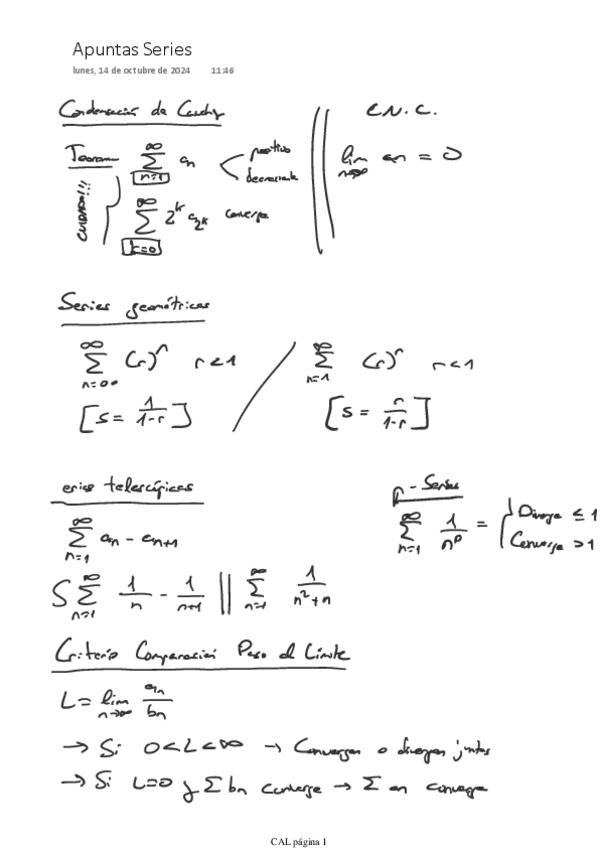 Apuntas Series
lunes, 14 de octubre de 2024 11:46
Condensación de Cauchy
C.N.C.
Teorema ∑_{n=1}^{∞} an < positiva decreciente
lim_{n→∞} an = 0
cuidado!!!
∑_{k=0}^{∞} 2^k a_{2^k} converge
Series geométricas
∑_{n=0}^{∞} (r)^n r<1 / ∑_{n=1}^{∞} (r)^n r<1
[S = 1/(1-r)] [S = r/(1-r)]
eries telescópicas
∑_{n=1}^{∞} an - an+1
p-Series
∑_{n=1}^{∞} 1/n^p = { Diverge ≤ 1
Converge > 1
S ∑_{n=1}^{∞} 1/n - 1/(n+1) || ∑_{n=1}^{∞} 1/(n²+n)
Criterio Comparación Paso al Límite
L = lim_{n→∞} an/bn
→ Si 0<L<∞ → Convergen o divergen juntas
→ Si L=0 y ∑ bn converge → ∑ an converge
CAL página 1